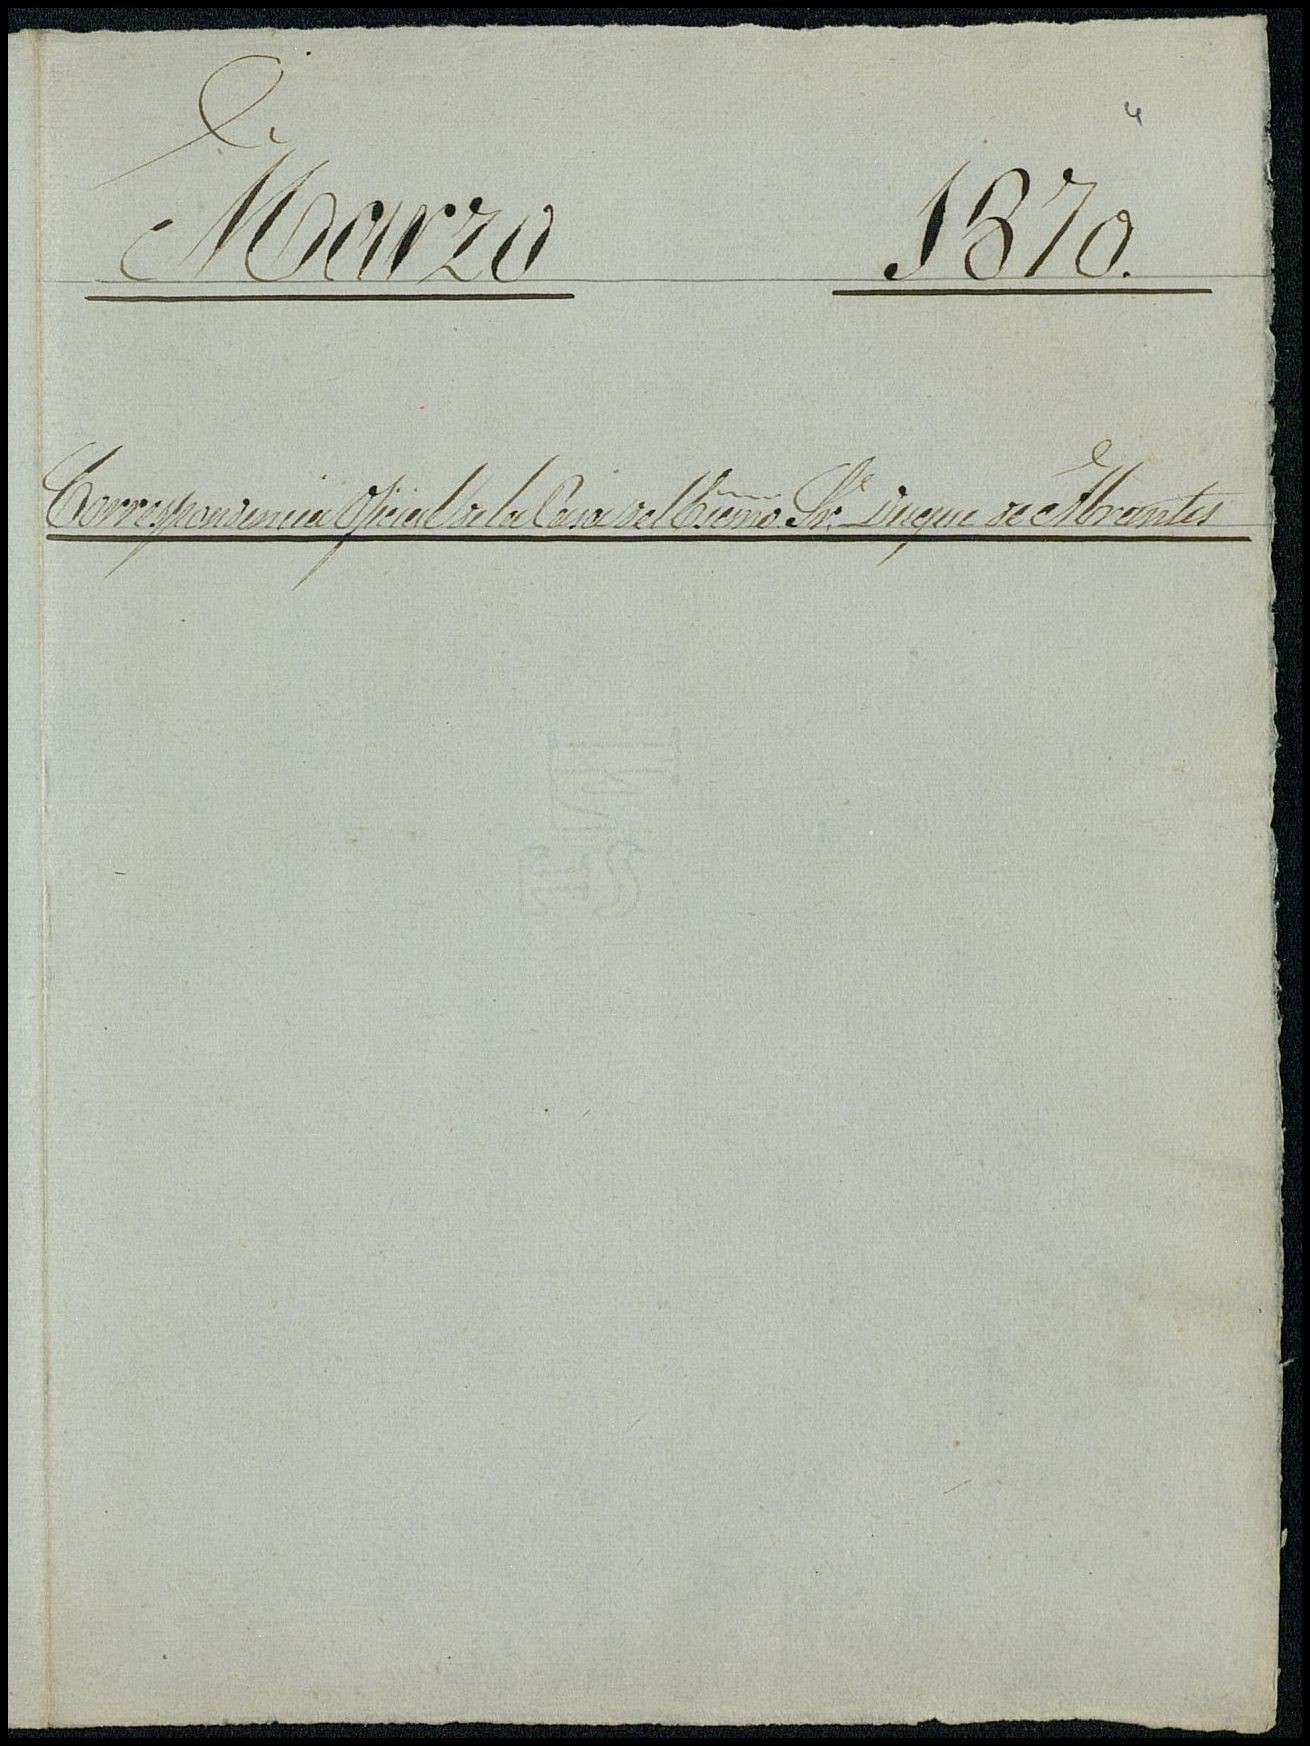 Marzo 1870.
Correspondencia Oficial de la Casa del Exmo Sr. Duque de Abrantes